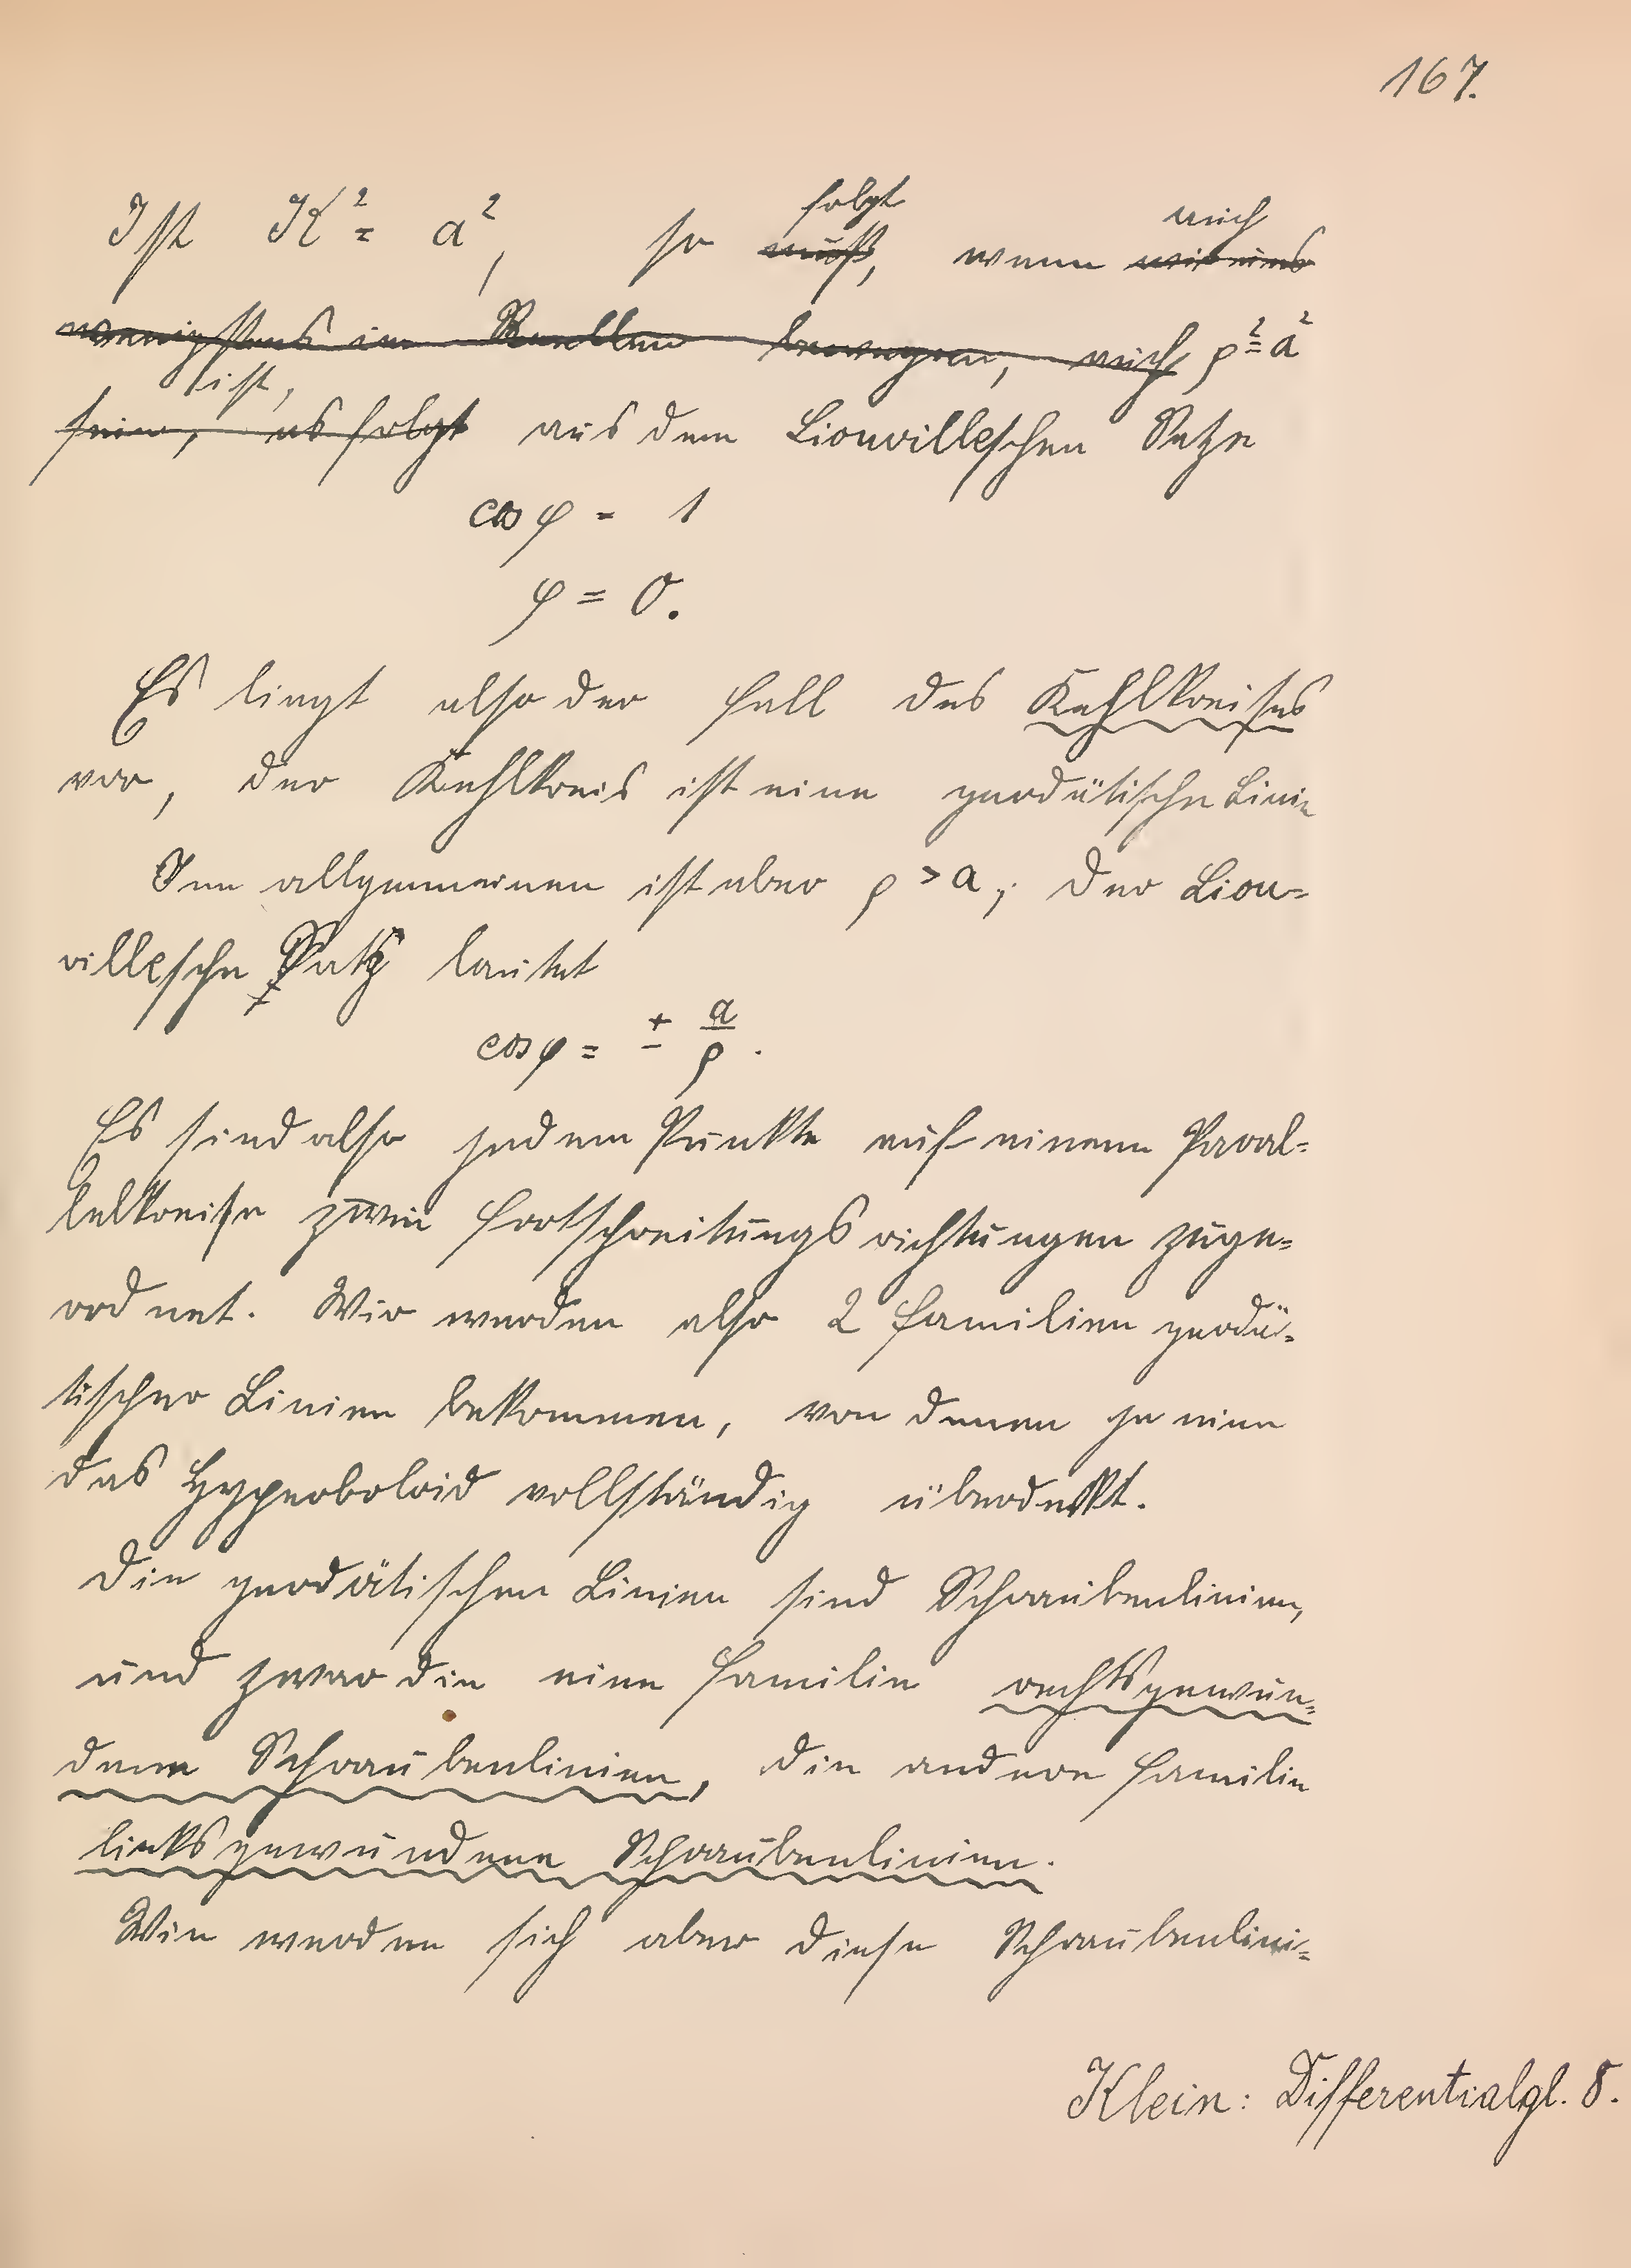 167.
Ist K² = a², so folgt muß, wenn auch wir uns
wenigstens im Reellen bewegen, auch ρ² = a²
ist, sein, es folgt aus dem Liouvilleschen Satze
cos φ = 1
φ = 0.
Es liegt also der Fall des Kehlkreises
vor, der Kehlkreis ist eine geodätische Linie
Im allgemeinen ist aber ρ > a; der Liou=
villesche Satz lautet
cos φ = ± a/ρ.
Es sind also jedem Punkte auf einem Paral=
lelkreise zwei Fortschreitungsrichtungen zuge=
ordnet. Wir werden also 2 Familien geodä=
tischer Linien bekommen, von denen je eine
das Hyperboloid vollständig überdeckt.
Die geodätischen Linien sind Schraubenlinien,
und zwar die eine Familie rechtsgewun=
dene Schraubenlinien, die andere Familie
linksgewundene Schraubenlinien.
Wie werden sich aber diese Schraubenlini=
Klein: Differentialgl. 8.